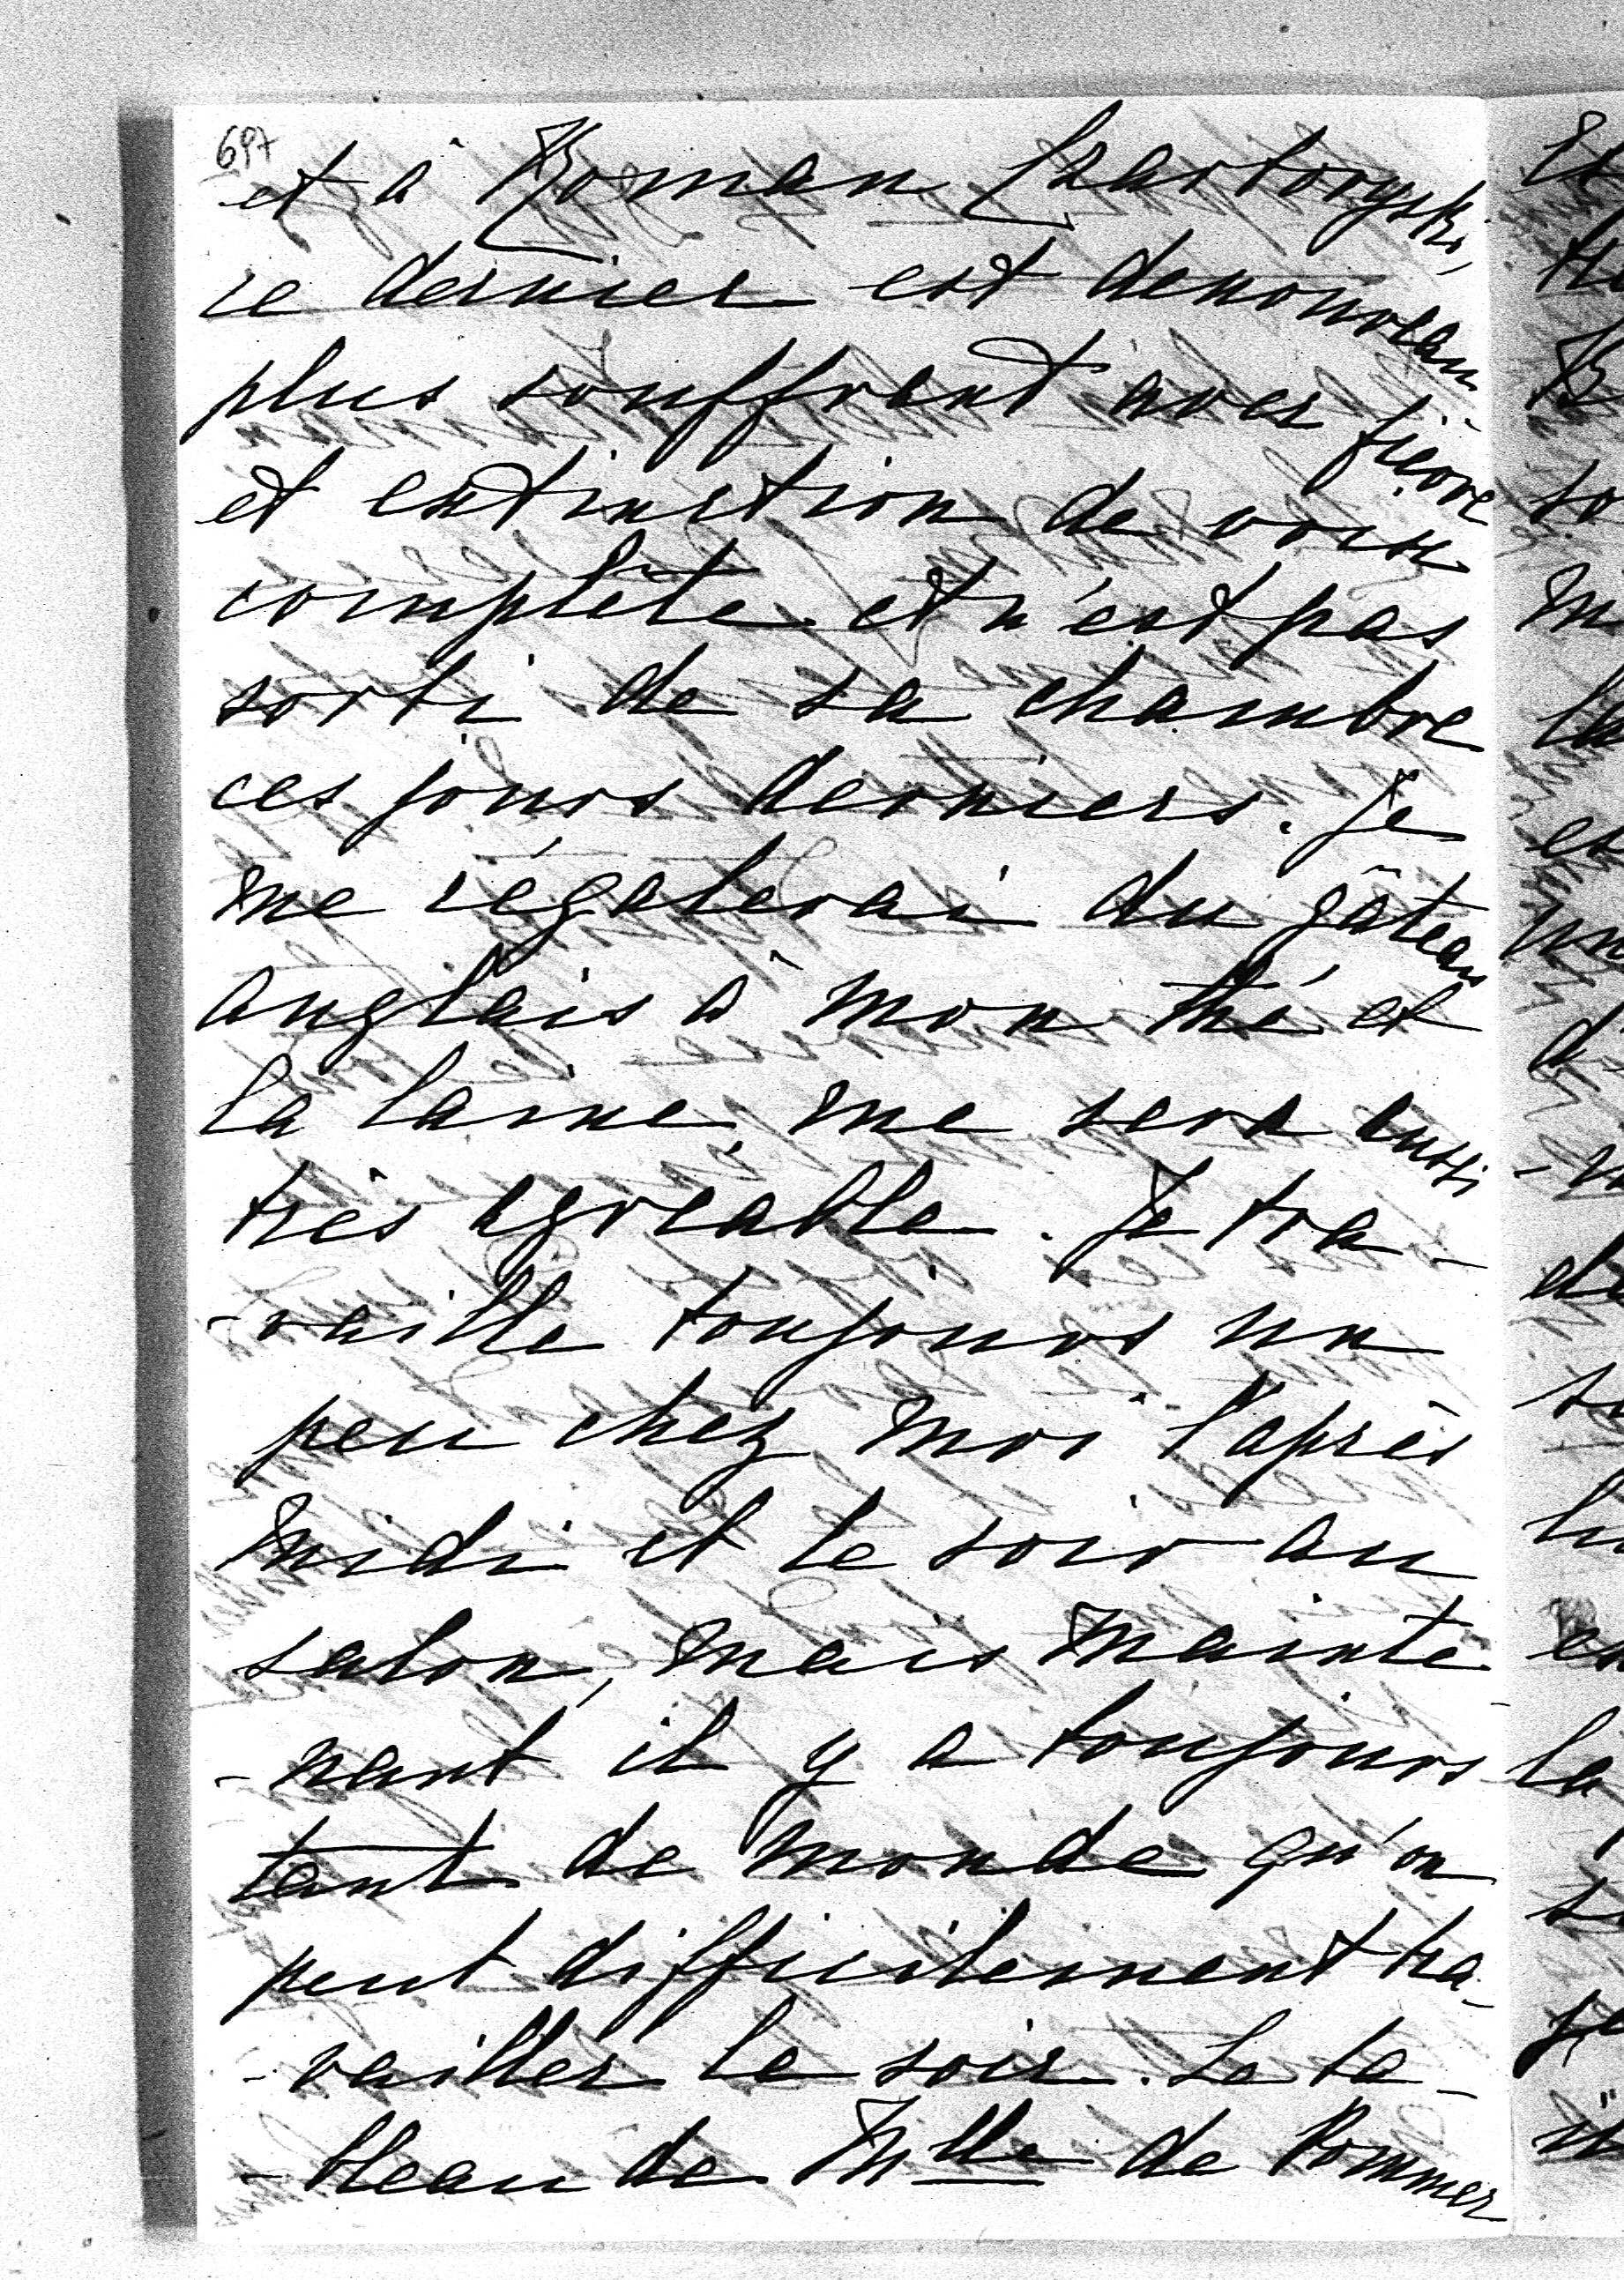 697
et à Roman Czartoryski,
ce dernier est denouveau
plus souffrant avec fièvre
et extinction de voix
complète et n'est pas
sorti de sa chambre
ces jours derniers. Je
me régalerai du gâteau
anglais à mon thé et
la laine me sera aussi
très agréable. Je tra-
-vaille toujours un
peu chez moi l'après
midi et le soir au
salon, mais mainte-
-nant il y a toujours
tant de monde qu'on
peut difficilement tra-
-vailler le soir. Le ta-
-bleau de Mlle de Pommer